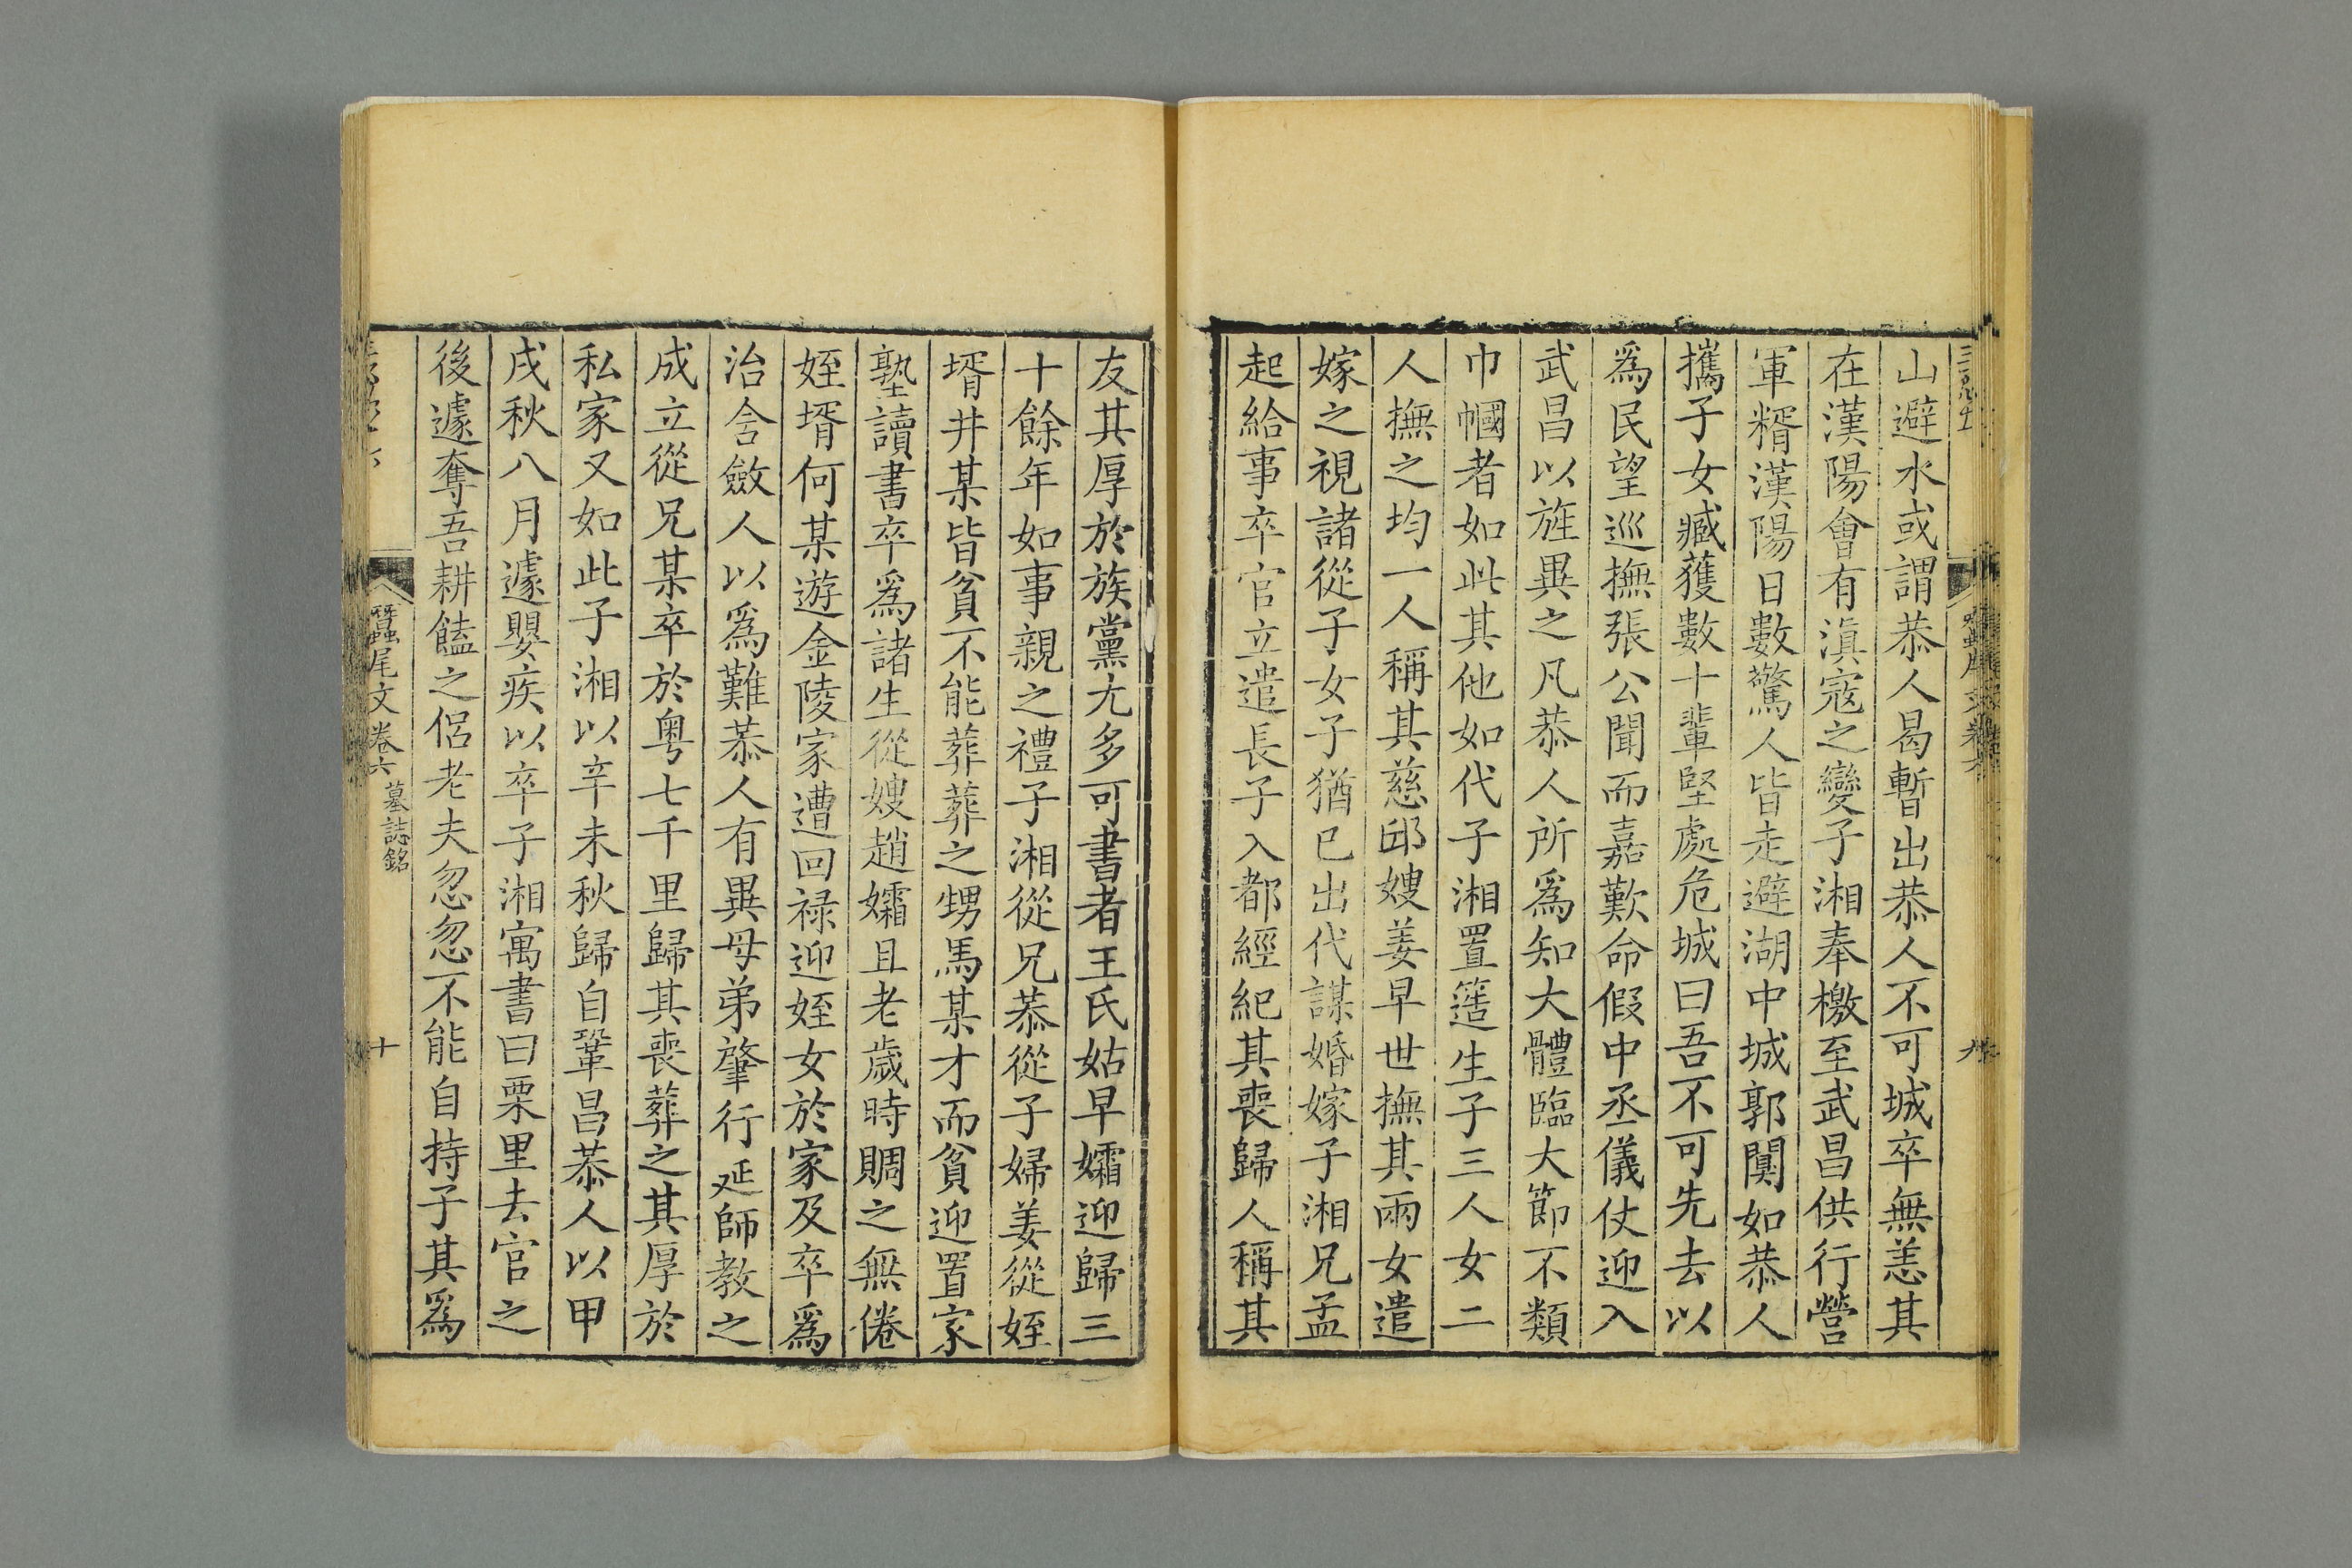 山避水或謂恭人曷暫出恭人不可城卒無恙其
在漢陽會有滇寇之變子湘奉檄至武昌供行營
軍糈漢陽日數驚人皆走避湖中城郭闃如恭人
攜子女臧獲數十輩堅處危城曰吾不可先去以
爲民望巡撫張公聞而嘉歎命假中丞儀仗迎入
武昌以旌異之凡恭人所爲知大體臨大節不類
巾幗者如此其他如代子湘置簉生子三人女二
人撫之均一人稱其慈邱嫂姜早世撫其兩女遣
嫁之視諸從子女子猶已出代謀婚嫁子湘兄孟
起給事卒官立遣長子入都經紀其喪歸人稱其
友其厚於族黨尤多可書者王氏姑早孀迎歸三
十餘年如事親之禮子湘從兄恭從子婦姜從姪
壻井某皆貧不能葬葬之甥馬某才而貧迎置家
塾讀書卒爲諸生從嫂趙孀且老歲時賙之無倦
姪壻何某遊金陵家遭回祿迎姪女於家及卒爲
治含斂人以爲難恭人有異母弟肇行延師教之
成立從兄某卒於粤七千里歸其喪葬之其厚於
私家又如此子湘以辛未秋歸自鞏昌恭人以甲
戌秋八月遽嬰疾以卒子湘寓書曰栗里去官之
後遽奪吾耕饁之侶老夫忽忽不能自持子其爲
蠶尾文卷六 墓誌銘 十